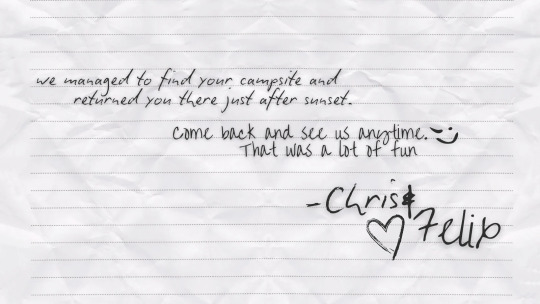 we managed to find your campsite and
returned you there just after sunset.
Come back and see us anytime. :)
That was a lot of fun
-Chris &
♡ Felix